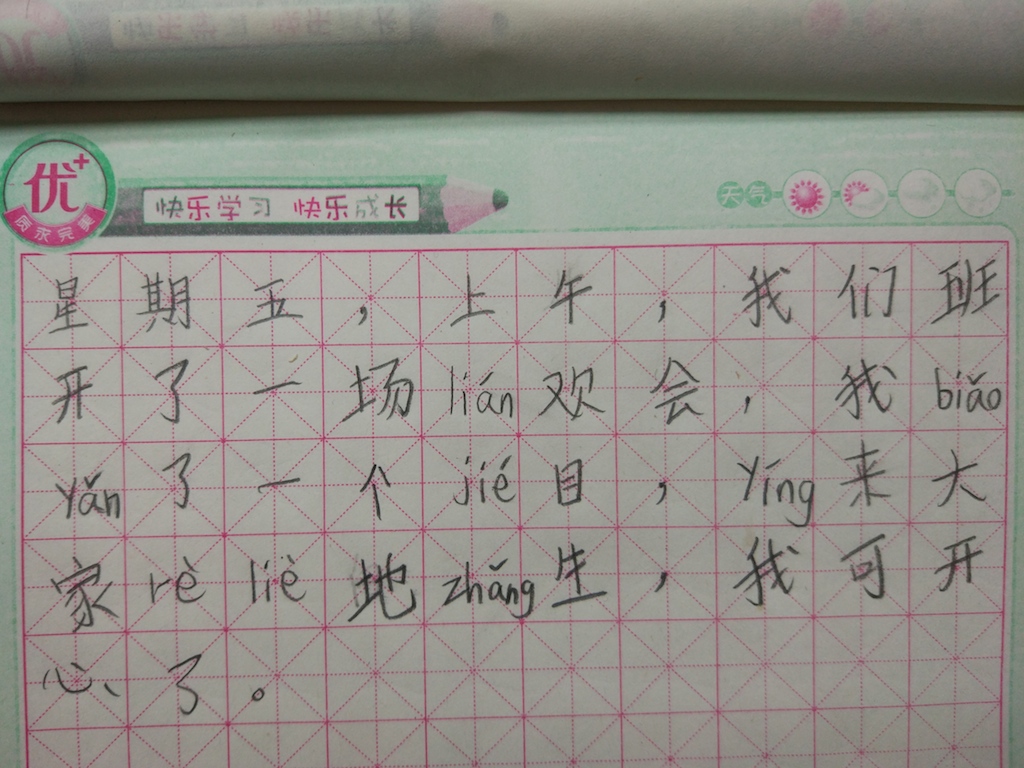 优+
质求完美
快乐学习 快乐成长
天气
星期五，上午，我们班
开了一场lián欢会，我biǎo
yǎn了一个jié目，yíng来大
家rè liè地zhǎng生，我可开
心了。